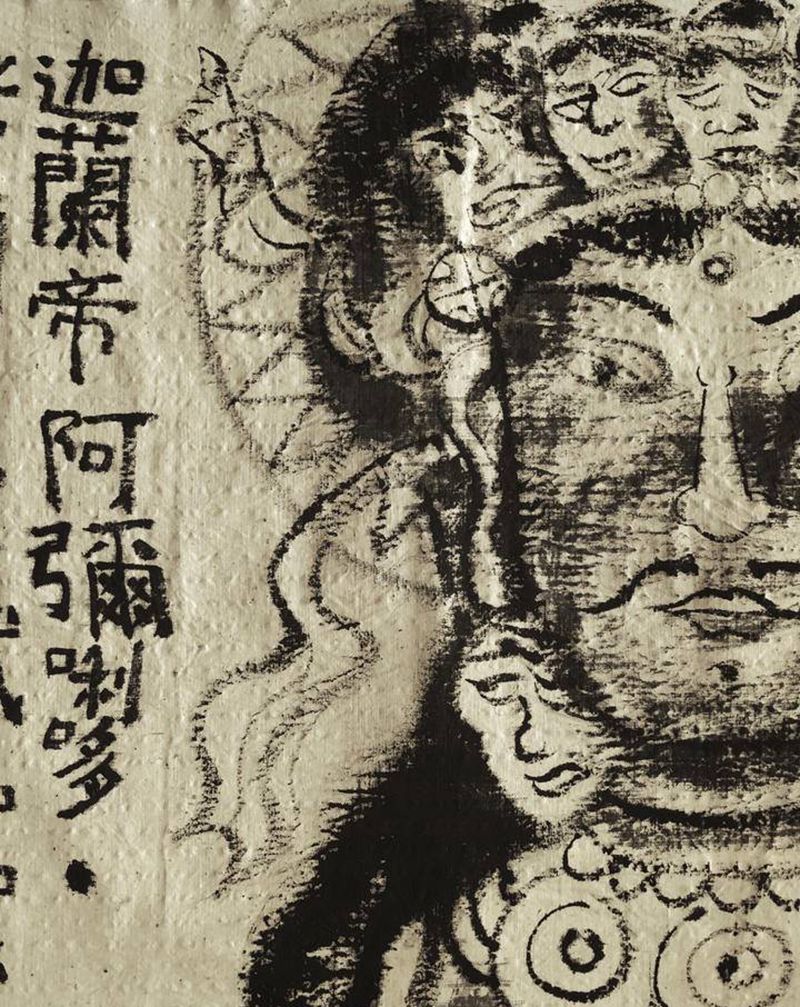 迦蘭帝 阿彌唎哆 •